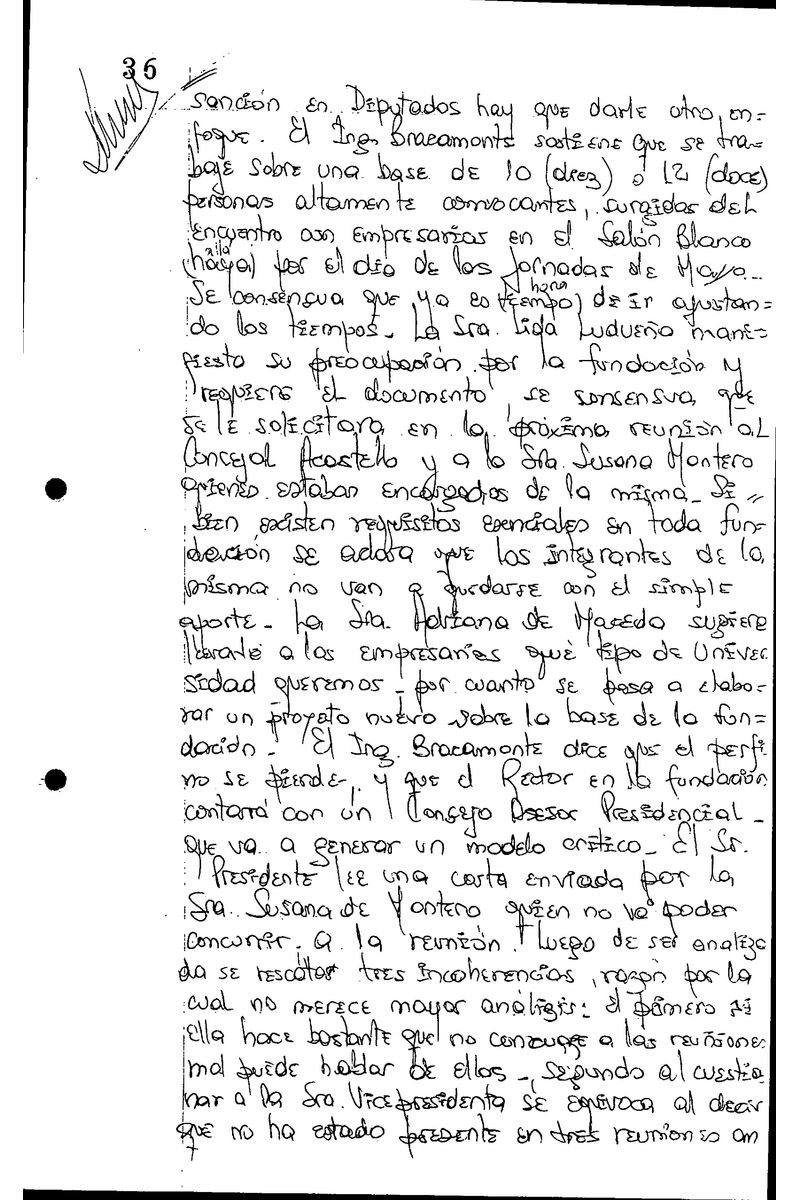 36
sanción en Diputados hay que darle otro en=
foque. El Ing. Bracamonte sostiene que se tra=
baje sobre una base de 10 (diez) ó 12 (doce)
personas altamente convocantes, surgidas del
encuentro con empresarios en el Salón Blanco
(haya) por el día de las Jornadas de Mayo_
hora
Se consensua que ya es (tiempo) de ir ajustan=
do los tiempos_ La Sra. Lida Ludueña mani=
fiesta su preocupación por la fundación y
requiere el documento, se consensua que
se le solicitara en la próxima reunión al
Concejal Acastello y a la Sra. Susana Montero
quienes estaban encargados de la misma_ Si
bien existen requisitos esenciales en toda fun=
dación se aclara que los integrantes de la
misma no van a quedarse con el simple
aporte_ La Sra. Adriana de Macedo sugiere
llevarle a los empresarios qué tipo de Univer
sidad queremos_ por cuanto se pasa a elabo=
rar un proyecto nuevo sobre la base de la fun=
dación_ El Ing. Bracamonte dice que el perfi
no se pierde, y que el Rector en la fundación
contará con un Consejo Asesor Presidencial_
que va a generar un modelo crítico_ El Sr.
Presidente lee una carta enviada por la
Sra. Susana de Montero quien no va poder
concurrir a la reunión. Luego de ser analiza
da se rescatan tres incoherencias, razón por la
cual no merece mayor análisis: el primero si
ella hace bastante que no concurre a las reuniones
mal puede hablar de ellas_, segundo al cuestio
nar a la Sra. Vicepresidenta se equivoca al decir
que no ha estado presente en tres reuniones con